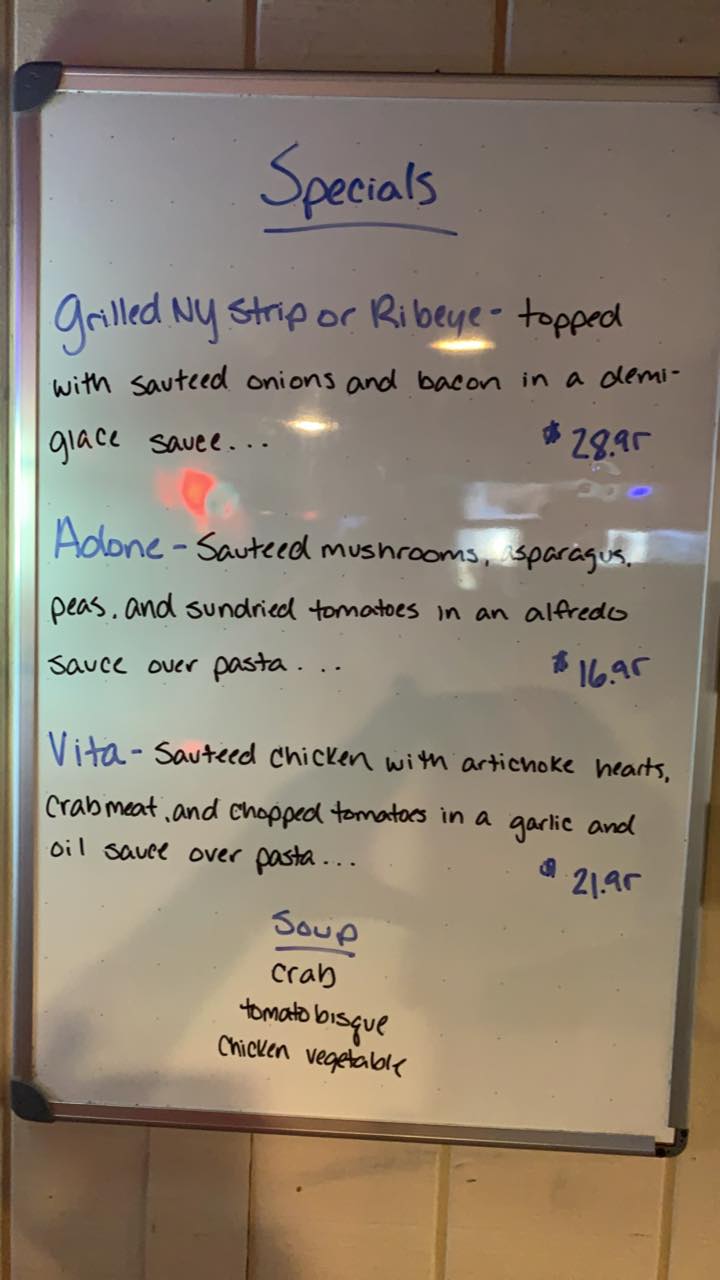 Specials
Grilled NY Strip or Ribeye - topped
with sauteed onions and bacon in a demi-
glace sauce...
$28.95
Adone - Sauteed mushrooms, asparagus,
peas, and sundried tomatoes in an alfredo
sauce over pasta...
$16.95
Vita - Sauteed chicken with artichoke hearts,
crabmeat, and chopped tomatoes in a garlic and
oil sauce over pasta...
$21.95
Soup
crab
tomato bisque
Chicken vegetable